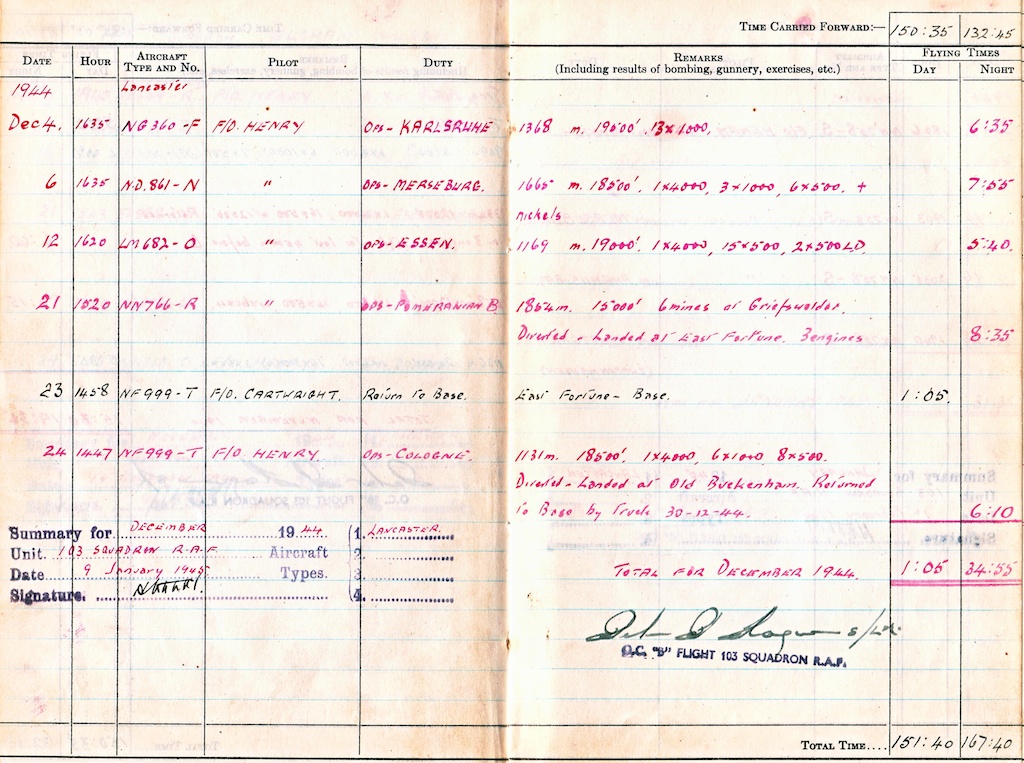 TIME CARRIED FORWARD:— 150:35 132:45
DATE HOUR AIRCRAFT TYPE AND NO. PILOT DUTY REMARKS (Including results of bombing, gunnery, exercises, etc.) FLYING TIMES DAY NIGHT
1944 Lancaster
Dec 4. 1635 NG360-F F/O. HENRY OPS- KARLSRUHE 1368 m. 19500' 13x1000, 6:35
6 1635 N.D. 861-N " OPS- MERSEBURG. 1665 m. 18500', 1x4000, 3x1000, 6x500. + 7:55
nickels
12 1620 LM682-O " OPS- ESSEN. 1169 m. 19000', 1x4000, 15x500, 2x500LD 5:40.
21 1520 NN766-R " OPS- POMERANIAN B 1854m. 15000' 6mines at Griefswalder.
Diverted - Landed at East Fortune. 3engines 8:35
23 1458 NF999-T F/O. CARTWRIGHT. Return To Base. East Fortune - Base. 1:05.
24 1447 NF999-T F/O. HENRY. Ops- COLOGNE. 1131m. 18500', 1x4000, 6x1000, 8x500.
Diverted - Landed at Old Buckenham. Returned
to Base by Truck 30-12-44. 6:10
Summary for DECEMBER 1944 1. LANCASTER.
Unit. 103 SQUADRON R.A.F. Aircraft 2.
Date 9 January 1945 Types. 3.
Signature. 4.
TOTAL FOR DECEMBER 1944. 1:05 34:55
S/Ldr.
O.C. "B" FLIGHT 103 SQUADRON R.A.F.
TOTAL TIME.... 151:40 167:40